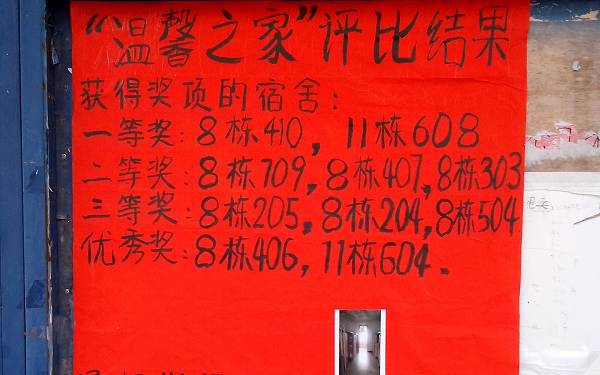 “温馨之家”评比结果
获得奖项的宿舍：
一等奖：8栋410，11栋608
二等奖：8栋709，8栋407，8栋303
三等奖：8栋205，8栋204，8栋504
优秀奖：8栋406，11栋604.